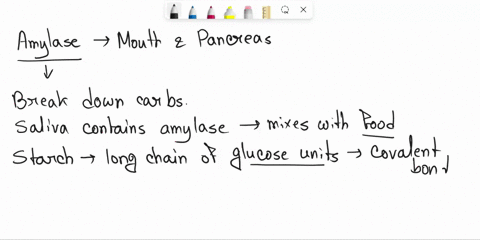 Amylase → Mouth & Pancreas
↓
Break down carbs.
Saliva contains amylase → mixes with Food
Starch → long chain of glucose units → covalent
bond